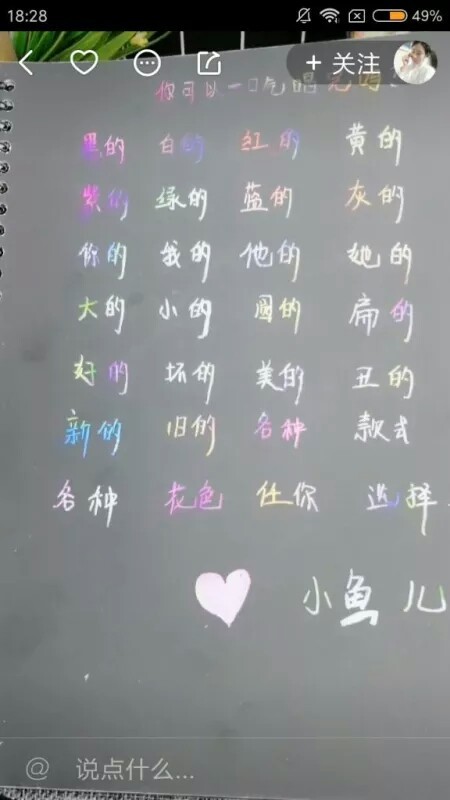 18:28
49%
+ 关注
你可以一口气唱完吗
黑的 白的 红的 黄的
紫的 绿的 蓝的 灰的
你的 我的 他的 她的
大的 小的 圆的 扁的
好的 坏的 美的 丑的
新的 旧的 各种 款式
各种 花色 任你 选择
小鱼儿
@ 说点什么...